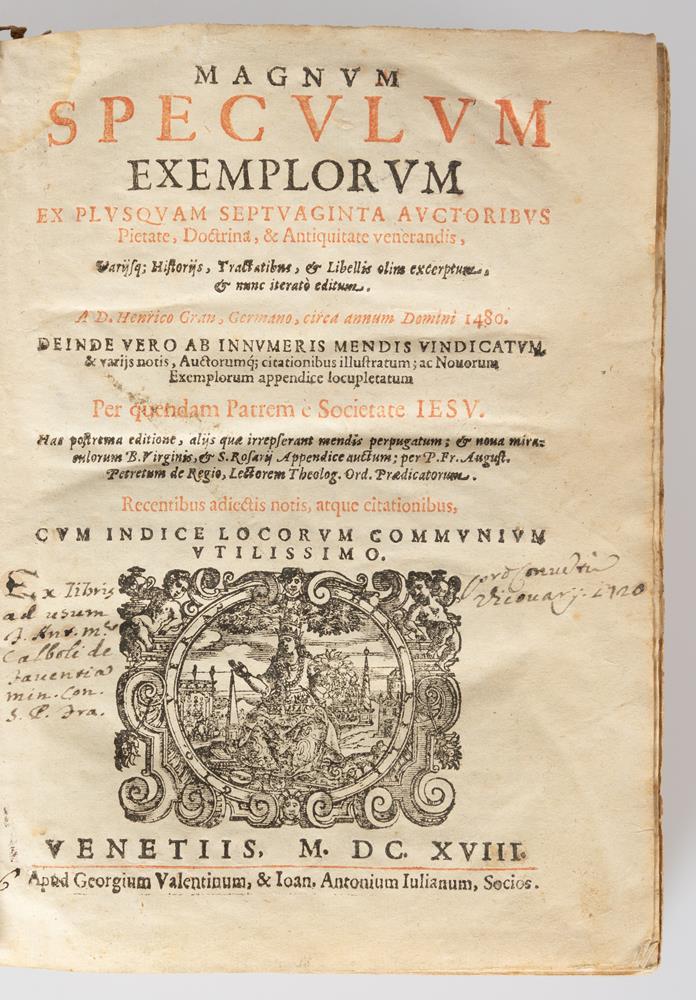 MAGNVM
SPECVLVM
EXEMPLORVM
EX PLVSQVAM SEPTVAGINTA AVCTORIBVS
Pietate, Doctrina, & Antiquitate venerandis,
Varijsq; Historijs, Tractatibus, & Libellis olim excerptum.
& nunc iteratò editum.
A D. Henrico Gran, Germano, circa annum Domini 1480.
DEINDE VERO AB INNVMERIS MENDIS VINDICATVM,
& varijs notis, Auctorumq; citationibus illustratum; ac Nouorum
Exemplorum appendice locupletatum
Per quendam Patrem è Societate IESV.
Hac postrema editione, alijs quæ irrepserant mendis perpugatum; & noua mira-
culorum B. Virginis, & S. Rosarij Appendice auctum; per P. Fr. August.
Petretum de Regio, Lectorem Theolog. Ord. Prædicatorum.
Recentibus adiectis notis, atque citationibus,
CVM INDICE LOCORVM COMMVNIVM
VTILISSIMO.
Ex libris
ad usum
Ant. m.
Calboli de
fauentia
min. Con.
S. P. Fra.
pro Conuetu
1720
VENETIIS, M. DC. XVIII.
Apud Georgium Valentinum, & Ioan. Antonium Iulianum, Socios.